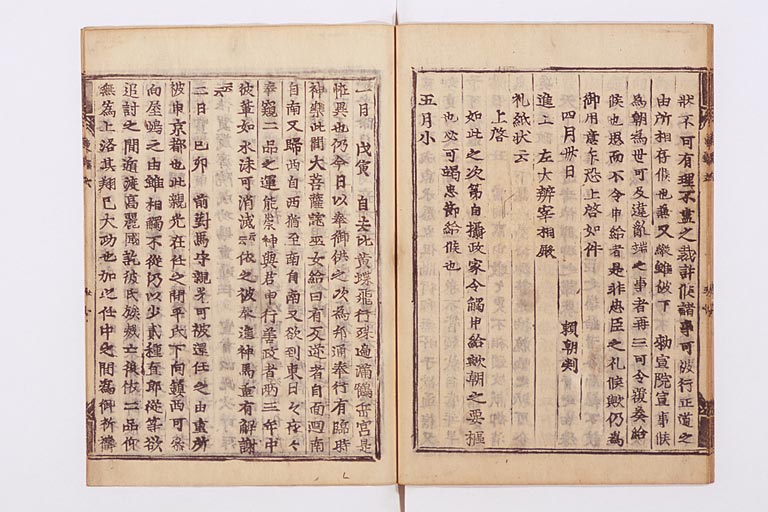 状不可有理不盡之裁許候諸事可被行正道之
由所相存候也兼又縱雖被下 勅宣院宣事候
為朝為世可及違亂端之事者再三可令覆奏給
候也恐而不令申給者是非忠臣之礼候歟仍為
御用意乍恐上啓如件
四月卅日 賴朝判
進上 左大辨宰相殿
礼紙狀云
上啓
如此之次第自攝政家令觸申給歟朝之要樞
也必可竭忠節給候也
五月小
一日 戊寅 自去比黃蝶飛行殊遍滿鶴岳宮是
恠異也仍今日以奉御供之次為邦通奉行有臨時
神樂此間大菩薩詫巫女給曰有反逆者自西廻南
自南又歸西自西猶至南自南又欲到東日々夜々
奉窺二品之運能崇神與君申行善政者兩三年中
彼輩如水沫可消滅云々依之被奉進神馬重有解謝
云々
二日 己卯 前對馬守親光可被還任之由重所
被申京都也此親光在任之間平氏下向鎮西可參
向屋嶋之由雖相觸不從仍以少貳種直郎從等欲
追討之間遁渡高麗國訖彼氏族滅亡後依二品仰
無為上洛其翔已大功也加之任中之間為御祈禱